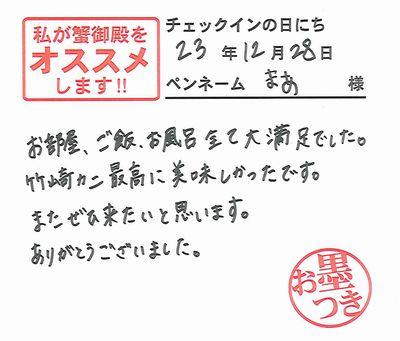 私が蟹御殿を
オススメ
します!!
チェックインの日にち
23年12月28日
ペンネーム まあ 様
お部屋、ご飯、お風呂全て大満足でした。
竹崎カニ最高に美味しかったです。
またぜひ来たいと思います。
ありがとうございました。
お墨つき